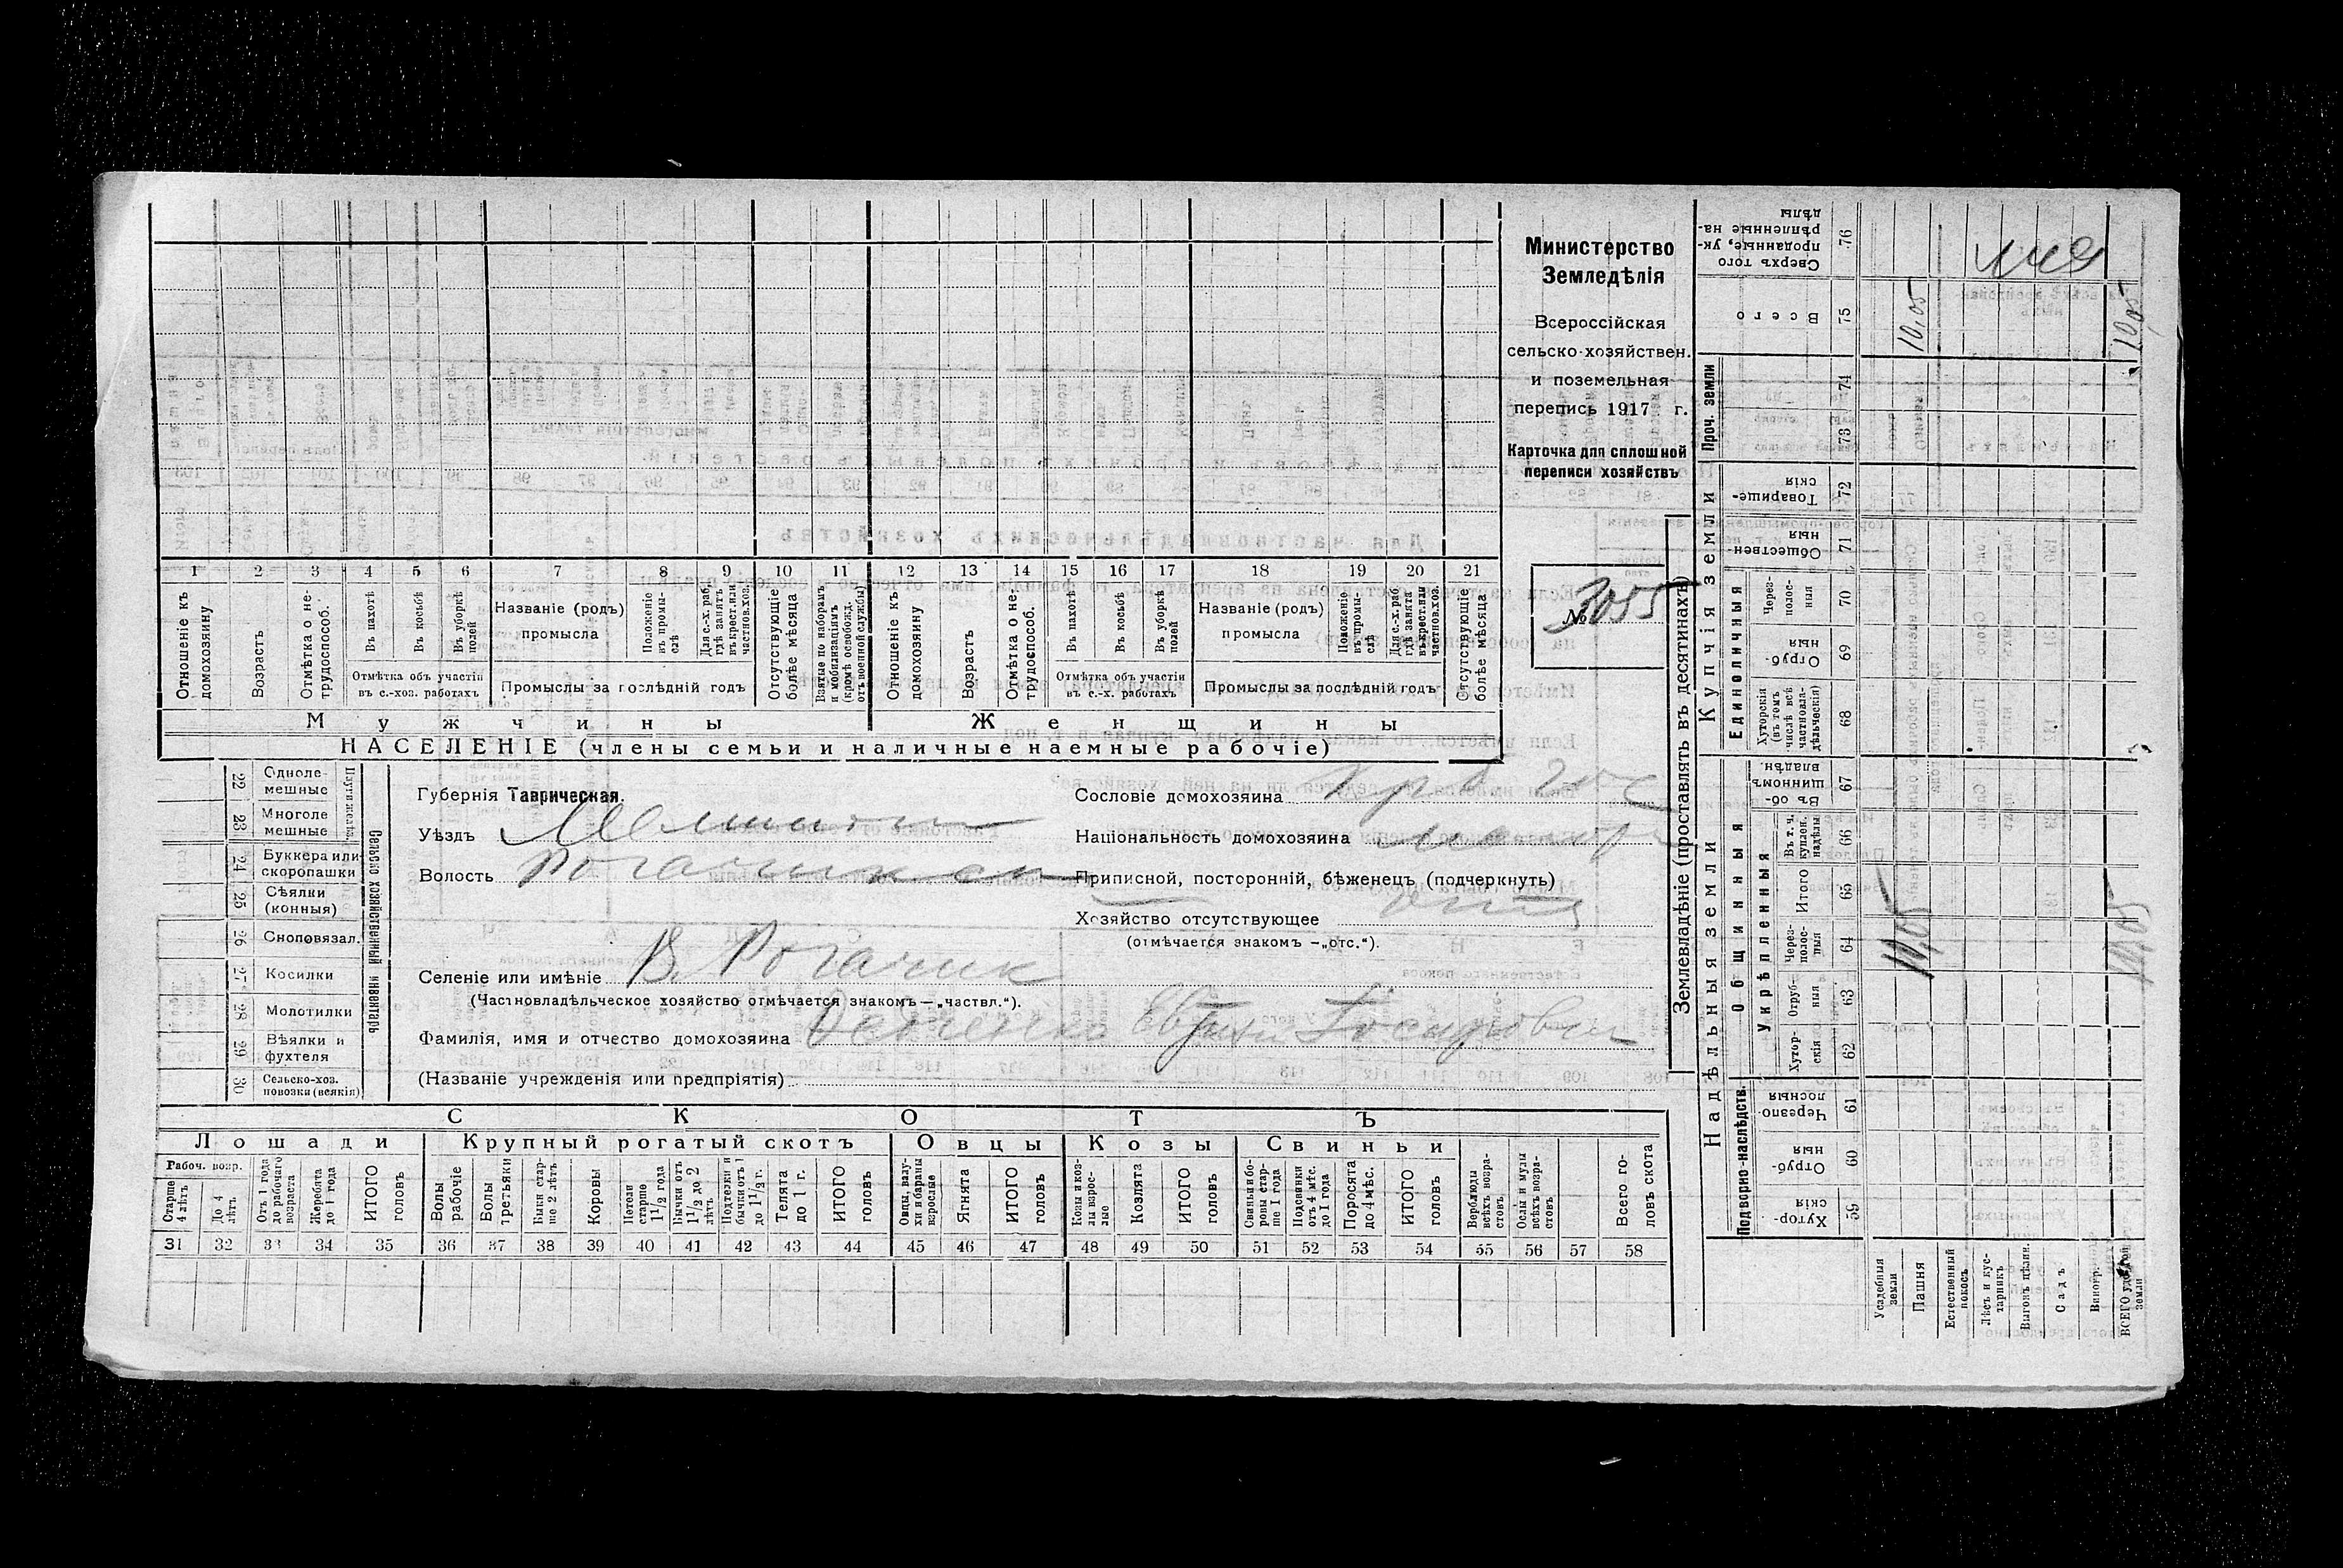 Министерство
Земледѣлія
Всероссійская
сельско-хозяйствен.
и поземельная
перепись 1917 г.
Карточка для сплошной
переписи хозяйствъ
№ 3055
1 2 3 4 5 6 7 8 9 10 11 12 13 14 15 16 17 18 19 20 21
Отношеніе къ домохозяину
Возрастъ
Отмѣтка о не-трудоспособ.
Въ пахотѣ
Въ косьбѣ
Въ уборкѣ полей
Отмѣтка объ участіи въ с.-хоз. работахъ
Названіе (родъ) промысла
Положеніе въ промы-слѣ
Для с.-х. раб. гдѣ занятъ въ крест. или частнов. хоз.
Промыслы за послѣдній годъ
Отсутствующіе болѣе мѣсяца
Взятые по наборамъ и мобилизаціямъ (кромѣ освобожд. отъ военной службы)
Отношеніе къ домохозяину
Возрастъ
Отмѣтка о не-трудоспособ.
Въ пахотѣ
Въ косьбѣ
Въ уборкѣ полей
Отмѣтка объ участіи въ с.-х. работахъ
Названіе (родъ) промысла
Положеніе въ промы-слѣ
Для с.-х. раб. гдѣ занята въ крест. или частнов. хоз.
Промыслы за послѣдній годъ
Отсутствующіе болѣе мѣсяца
Мужчины Женщины
НАСЕЛЕНІЕ (члены семьи и наличные наемные рабочіе)
Сельско хозяйственный инвентарь
22 Одноле-мешные
23 Многоле мешные
24 Буккера или скоропашки
25 Сѣялки (конныя)
26 Сноповязал.
27 Косилки
28 Молотилки
29 Вѣялки и фухтеля
30 Сельско-хоз. повозки (всякія)
Губернія Таврическая.
Уѣздъ
Волость
Селеніе или имѣніе В. Рогачик
(Частновладѣльческое хозяйство отмѣчается знакомъ—„частвл.“).
Фамилія, имя и отчество домохозяина
(Названіе учрежденія или предпріятія)
Сословіе домохозяина
Національность домохозяина
Приписной, посторонній, бѣженецъ (подчеркнуть)
Хозяйство отсутствующее
(отмѣчается знакомъ —„отс.“).
СКОТЪ
Лошади Крупный рогатый скотъ Овцы Козы Свиньи
Рабоч. возр.
Старше 4 лѣтъ
До 4 лѣтъ
Отъ 1 года до рабочаго возраста
Жеребята до 1 года
ИТОГО головъ
Волы рабочіе
Волы третьяки
Быки стар-ше 2 лѣтъ
Коровы
Нетели старше 1 1/2 года
Бычки отъ 1 1/2 до 2 лѣтъ
Подтелки и бычки отъ 1 до 1 1/2 г.
Телята до 1 г.
ИТОГО головъ
Овцы, валу-хи и бараны взрослые
Ягнята
ИТОГО головъ
Козы и коз-лы взрос-лые
Козлята
ИТОГО головъ
Свиньи и бо-ровы стар-ше 1 года
Подсвинки отъ 4 мѣс. до 1 года
Поросята до 4 мѣс.
ИТОГО головъ
Верблюды всѣхъ возра-стовъ
Ослы и мулы всѣхъ возра-стовъ
Всего го-ловъ скота
31 32 33 34 35 36 37 38 39 40 41 42 43 44 45 46 47 48 49 50 51 52 53 54 55 56 57 58
Землевладѣніе (проставлять въ десятинахъ)
Надѣльныя земли Купчія земли Проч. земли
Подворно-наслѣдств. Общинныя Единоличныя
Укрѣпленныя
59 Хутор-скія
60 Отруб-ныя
61 Черезпо лосныя
62 Хутор-скія
63 Отруб-ныя
64 Через-полос-ныя
65 Итого
66 Въ т. ч. куплен. надѣлы
67 Въ об-щинномъ владѣн.
68 Хуторскія (въ томъ числѣ всѣ частновла-дѣльческія)
69 Отруб-ныя
70 Через-полос-ныя
71 Обществен-ныя
72 Товарище-скія
73
74
75 Всего
76 Сверхъ того проданные, ук-рѣпленные на-дѣлы
Усадебныя земли
Пашня 10,05 10,05
Естественный покосъ
Лѣсъ и кус-тарникъ
Выгонъ цѣлин.
Садъ
Виногр.
ВСЕГО удобной земли 10,05 10,05